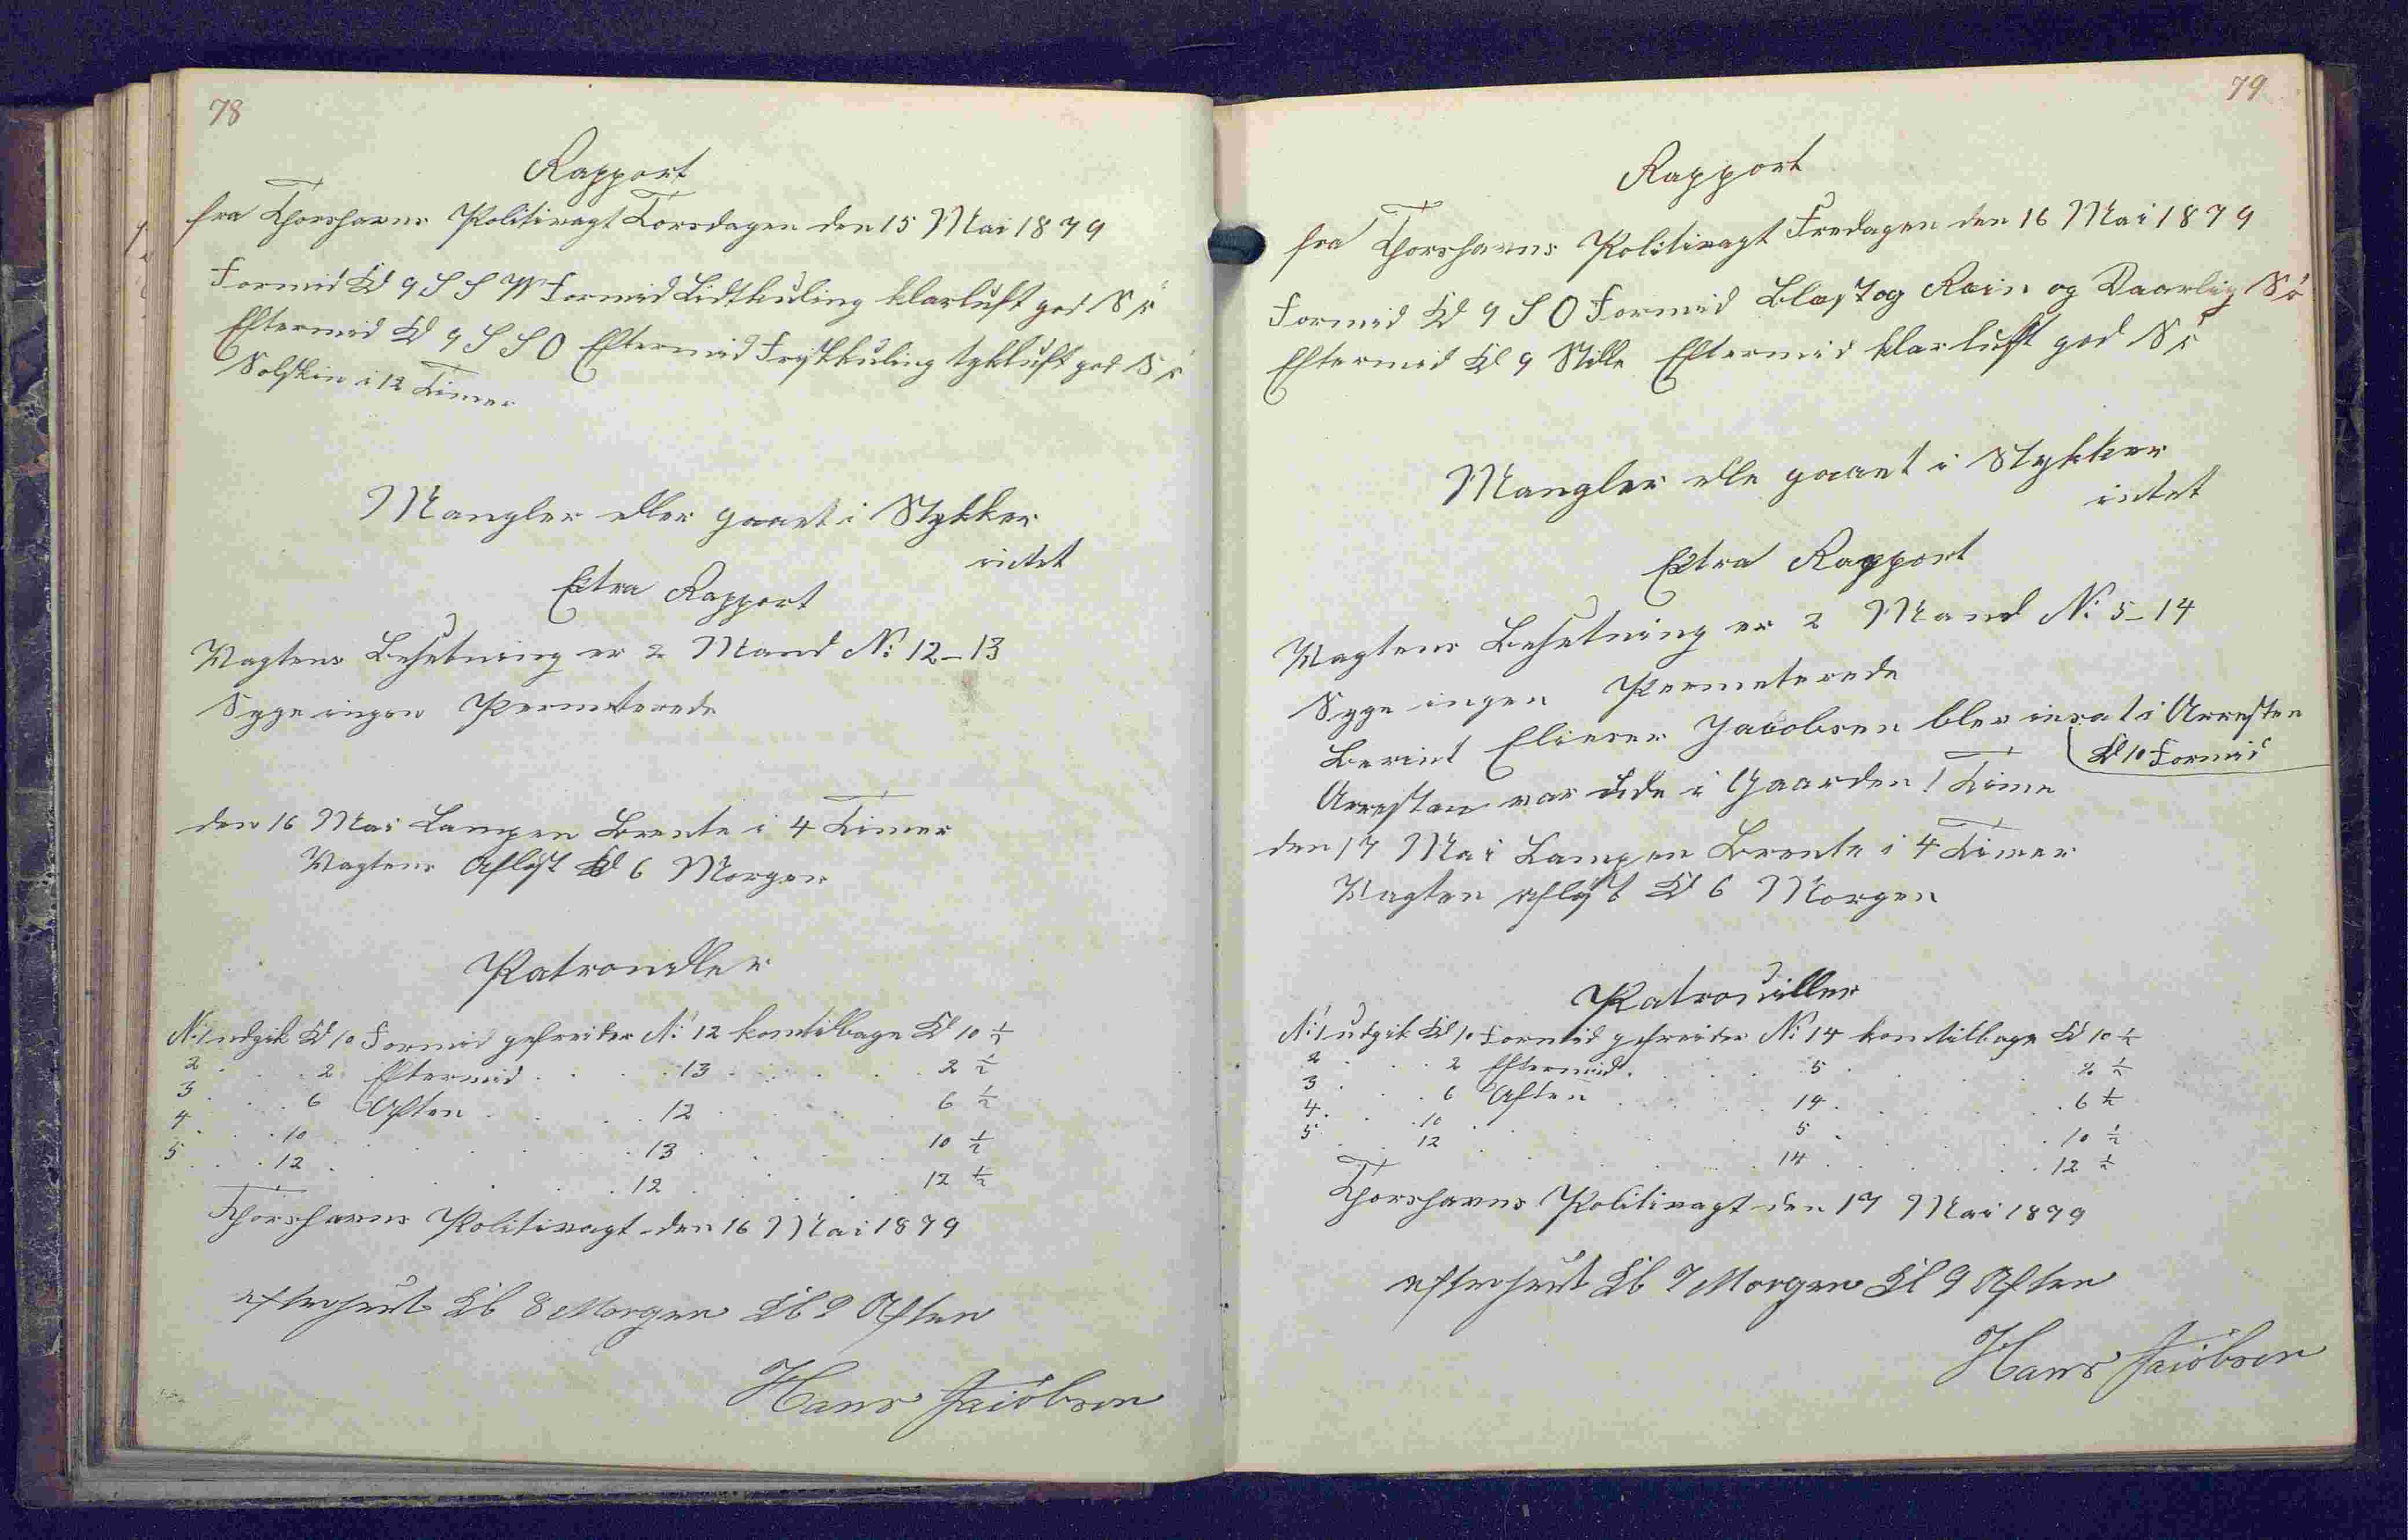 78
Rapport
fra Thorshavns Politivagt Torsdagen den 15 Mai 1879
Formid Kl 9 S S W Formid Lidtkuling klarluft god Sö
Eftermid Kl 9 S S O Eftermid Friskkuling tykluft god Sö
Solskin i 12 Timer
Mangler eller gaaet i Stykker
intet
Extra Rapport
Vagtens Besetning er 2 Mand No: 12-13
Syge ingen Permeterede
den 16 Mai Lampen Brente i 4 Timer
Vagtens Aflöst Kl 6 Morgen
Patrouiller
No: 1 udgik Kl 10 Formid gefreider No: 12 kom tilbage Kl 10 ½
2 . . . 2 Eftermid . . . 13 . . . 2 ½
3 . . . 6 Aften . . . 12 . . . 6 ½
4 . . . 10 . . . 13 . . . 10 ½
5 . . . 12 . . . 12 . . . 12 ½
Thorshavns Politivagt den 16 Mai 1879
efterseet Kl 8 Morgen Kl 9 Aften
Hans Jacobsen
79
Rapport
fra Thorshavns Politivagt Fredagen den 16 Mai 1879
Formid Kl 9 S O Formid Blæst og Rein og Daarlig Sö
Eftermid Kl 9 Stille Eftermid klarluft god Sö
Mangler elle gaaet i Stykker
intet
Extra Rapport
Vagtens Besetning er 2 Mand No: 5-14
Syge ingen Permeterede
Berint Elieser Jacobsen blev insat i Arresten
Kl 10 Formid
Arresten var ude i Gaarden 1 Time
den 17 Mai Lampen Brente i 4 Timer
Vagten aflöst Kl 6 Morgen
Patrouiller
No: 1 udgik Kl 10 Formid gefreider No: 14 kom tilbage Kl 10 ½
2 . . . 2 Eftermid . . . 5 . . . 2 ½
3 . . . 6 Aften . . . 14 . . . 6 ½
4 . . . 10 . . . 5 . . . 10 ½
5 . . . 12 . . . 14 . . . 12 ½
Thorshavns Politivagt den 17 Mai 1879
efterseet Kl 7 Morgen Kl 9 Aften
Hans Jacobsen